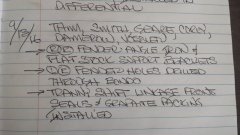 DIFFERENTIAL
9/15/16 THAW, SMITH, GEARE, COREY,
DAMERON, VIERNEL
→ RR FENDER ANGLE IRON &
FLAT STOCK SUPPORT BRACKETS
→ FENDER HOLES DRILLED
THROUGH BONDO
→ TRANNY SHIFT LINKAGE FRONT
SEALS & GRAPHITE PACKING
INSTALLED